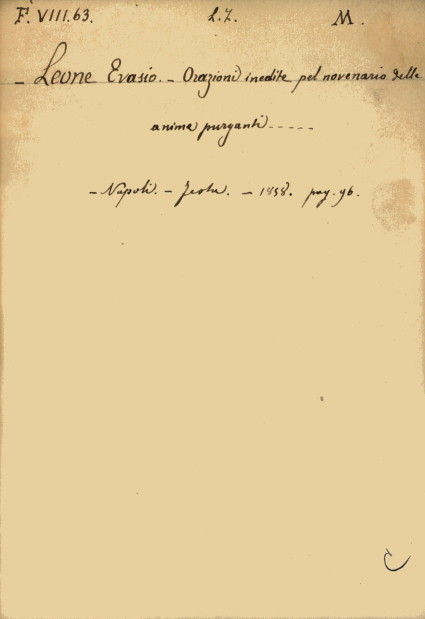 F. VIII.63. L.7. M.
– Leone Evasio. – Orazioni inedite pel novenario delle
anime purganti - - - - -
– Napoli. – Festa. – 1858. pag. 96.
C